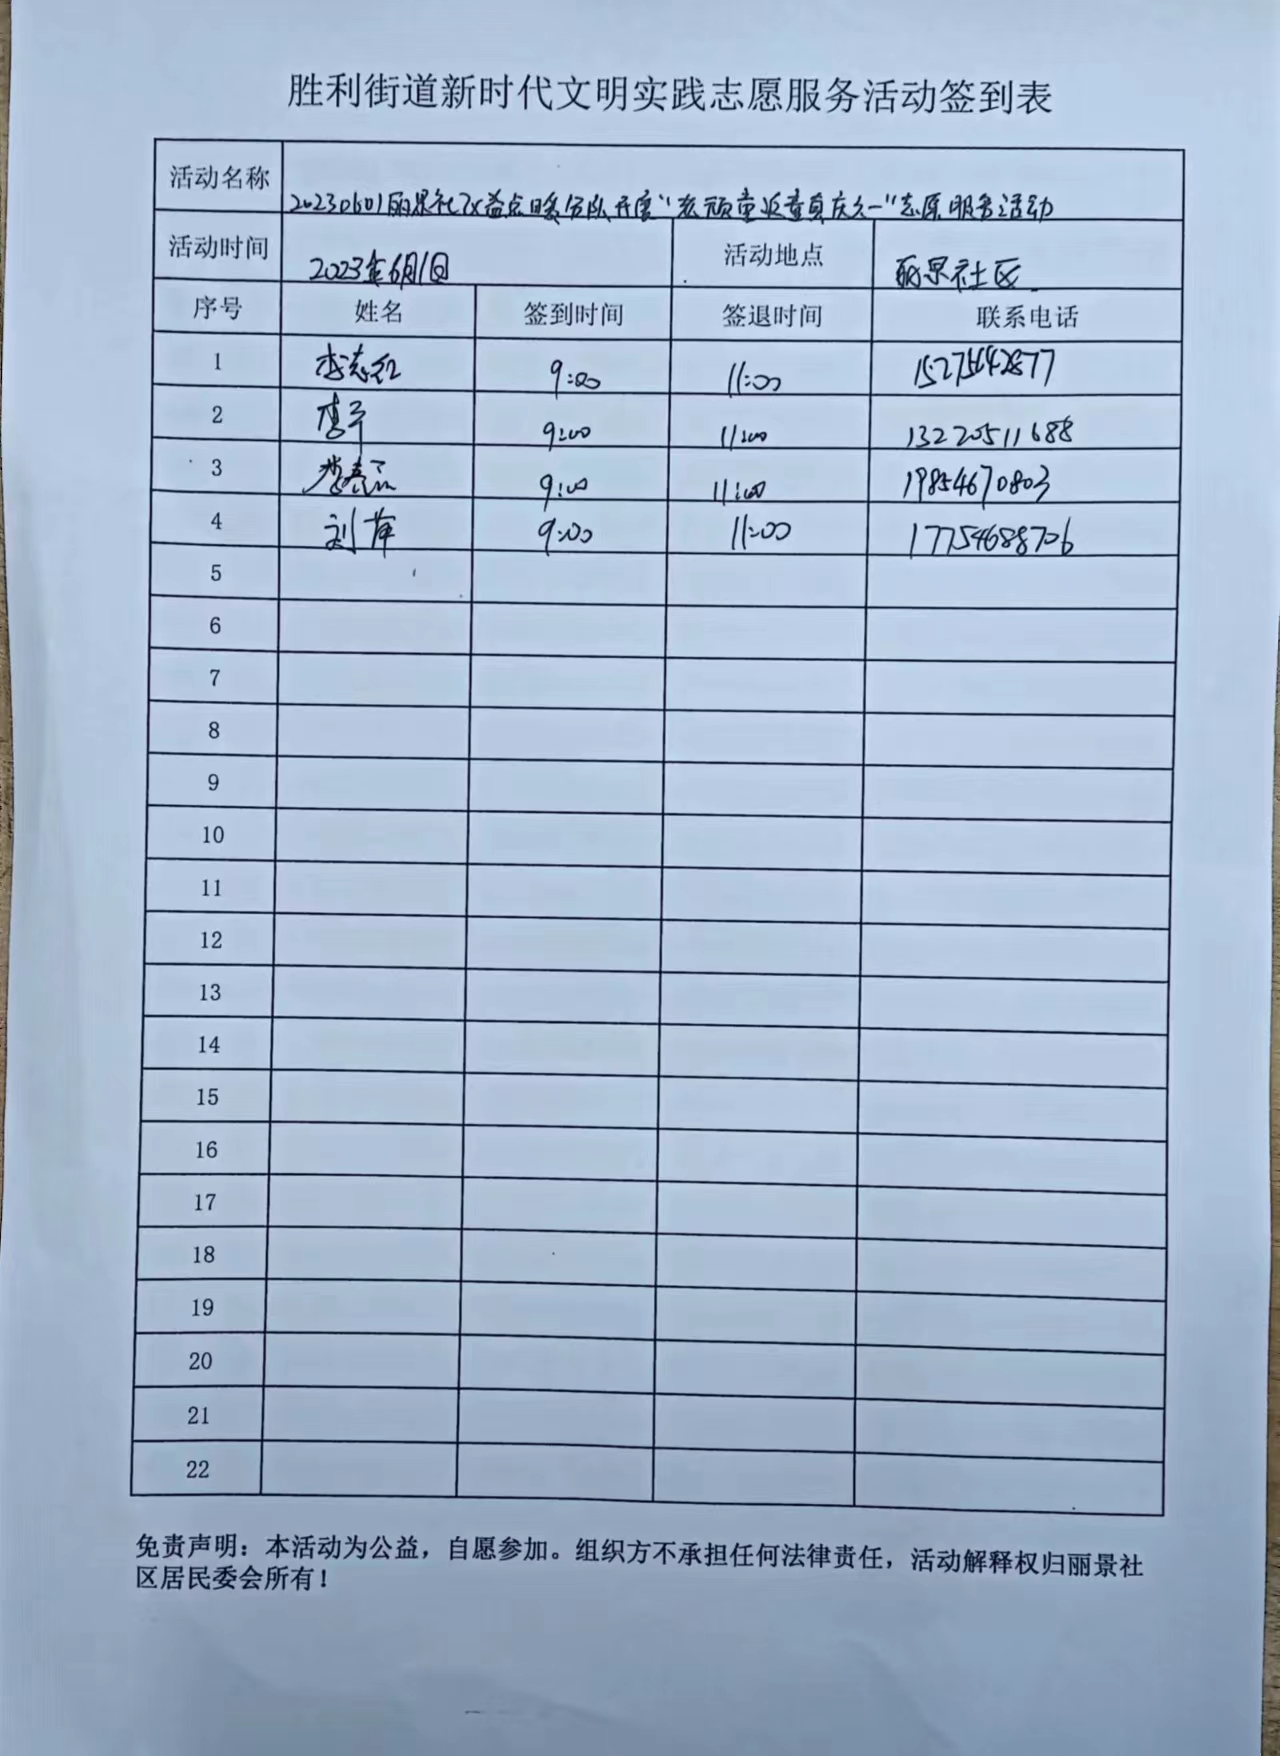 胜利街道新时代文明实践志愿服务活动签到表
活动名称 20230601丽景社区益点暖分队开展“老顽童返童真庆六一”志愿服务活动
活动时间 2023年6月1日 活动地点 丽景社区
序号 姓名 签到时间 签退时间 联系电话
1 李志红 9:00 11:00 15275642877
2 李平 9:00 11:00 13220511688
3 9:00 11:00 19854670803
4 刘萍 9:00 11:00 17754688706
5
6
7
8
9
10
11
12
13
14
15
16
17
18
19
20
21
22
免责声明：本活动为公益，自愿参加。组织方不承担任何法律责任，活动解释权归丽景社
区居民委会所有！